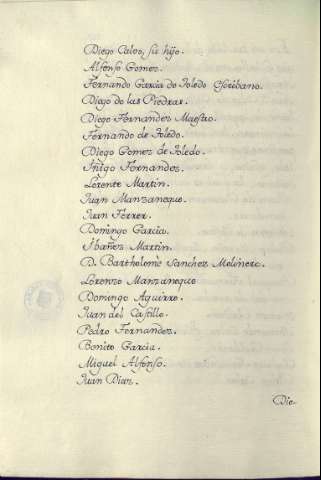 Diego Calvo, su hijo.
Alfonso Gomez.
Fernando Garcia de Toledo Escribano.
Diego de las Piedras.
Diego Fernandez Maestro.
Fernando de Toledo.
Diego Gomez de Toledo.
Iñigo Fernandez.
Lorente Martin.
Juan Manzaneque.
Juan Ferrer.
Domingo Garcia.
Ibañez Martin.
D. Bartholomè Sanchez Molinero.
Lorenzo Manzaneque
Domingo Aguirre.
Juan del Castillo.
Pedro Fernandez.
Benito Garcia.
Miguel Alfonso.
Juan Diaz.
Die-